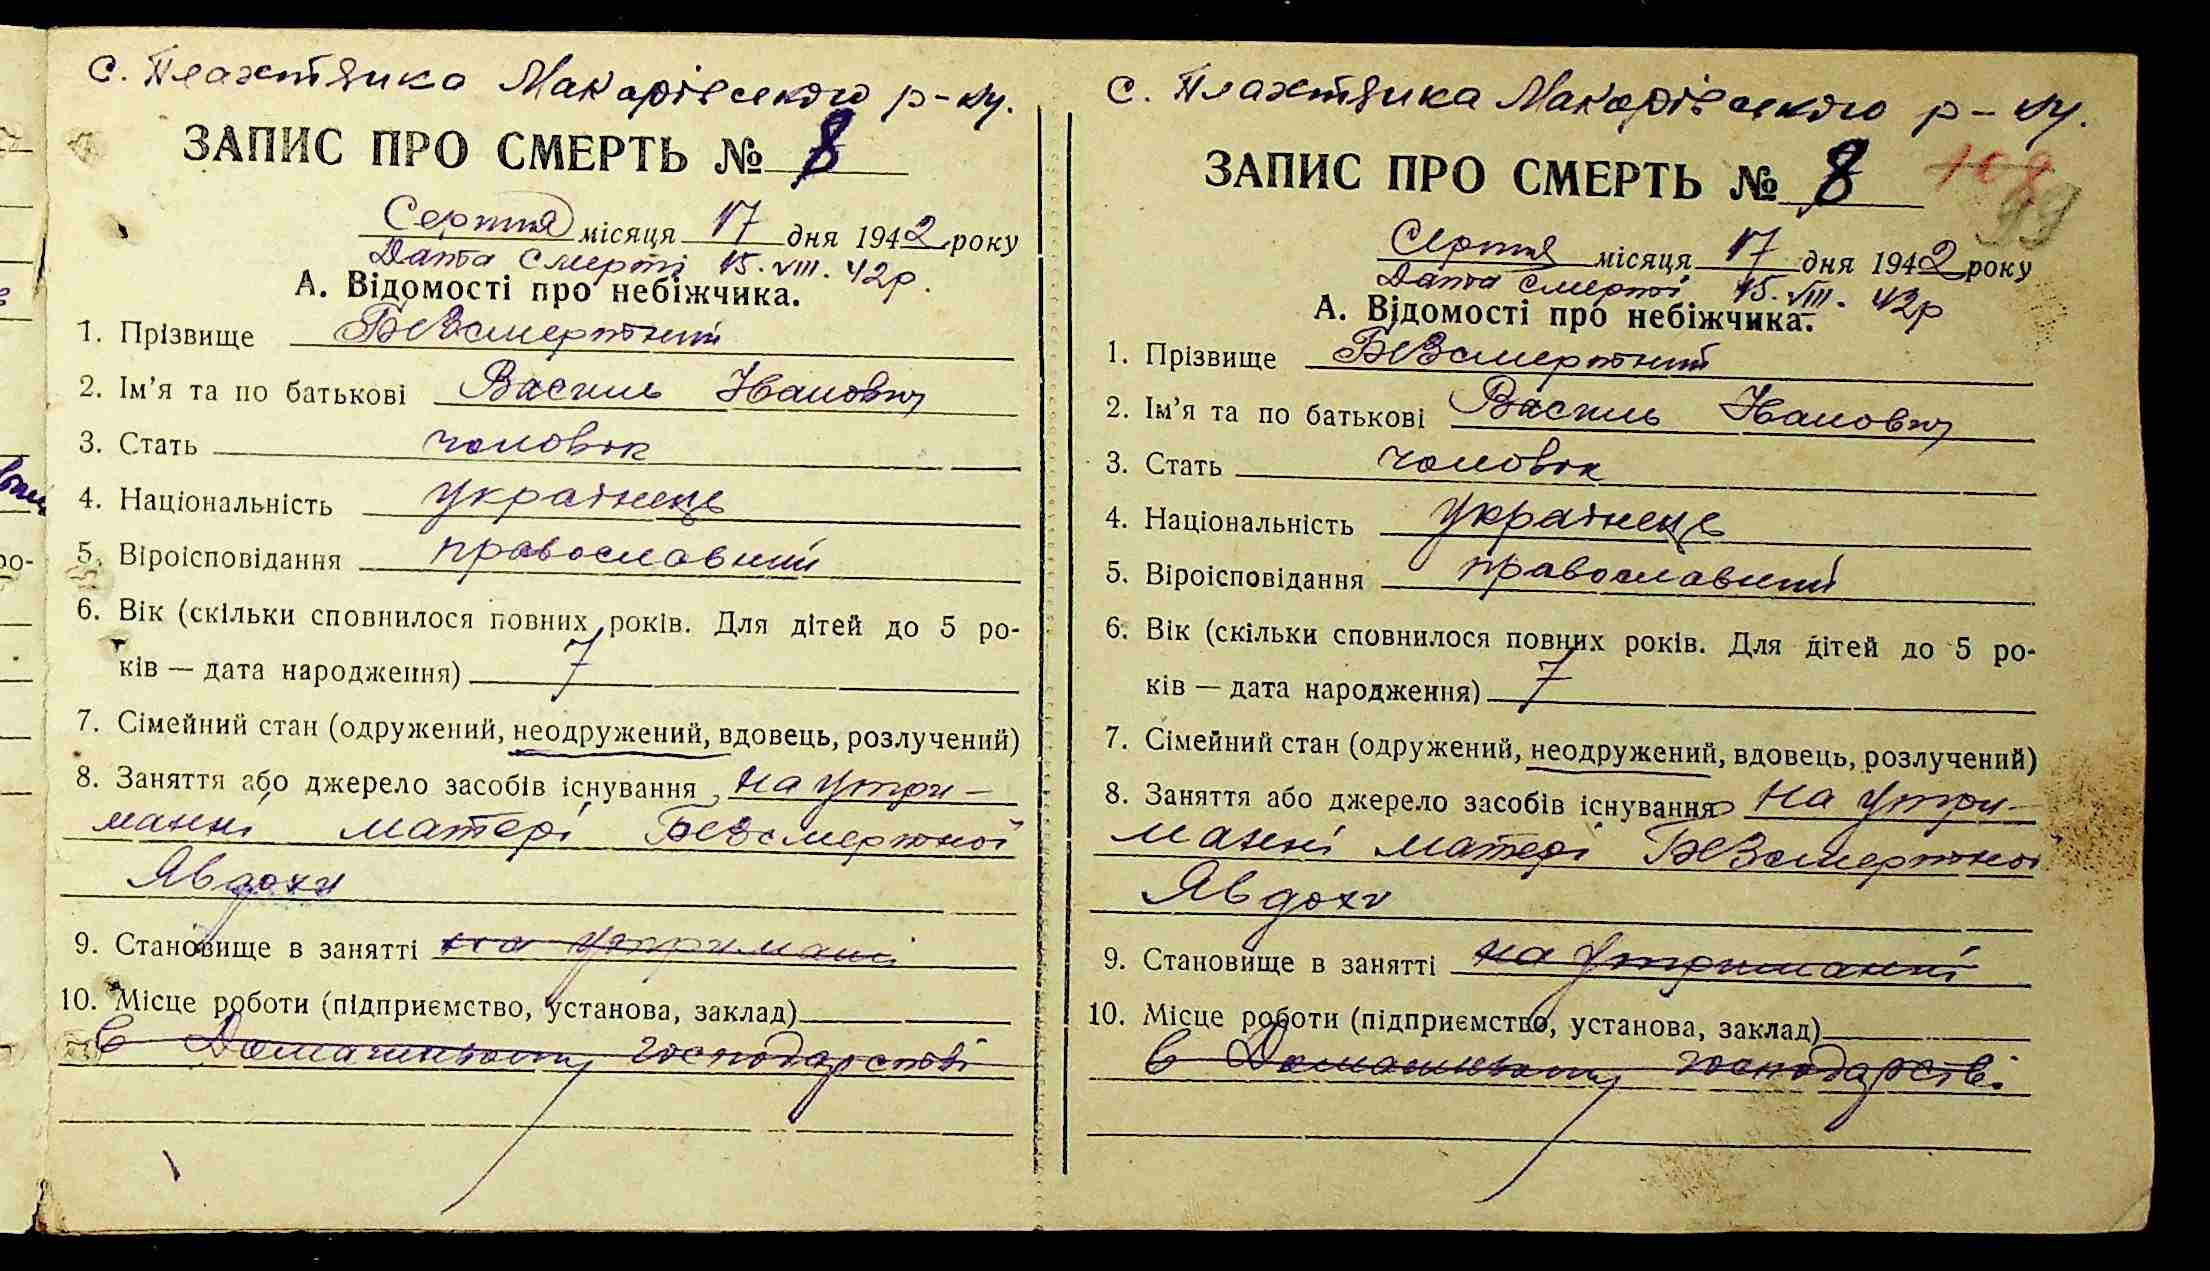 с. Плахтянка Макарівського р-ну.
ЗАПИС ПРО СМЕРТЬ № 8
Серпня місяця 17 дня 1942 року
Дата смерті 15.VIII.42р.
А. Відомості про небіжчика.
1. Прізвище Безсмертний
2. Ім'я та по батькові Василь Іванович
3. Стать чоловік
4. Національність українець
5. Віроісповідання православний
6. Вік (скільки сповнилося повних років. Для дітей до 5 ро-
ків — дата народження) 7
7. Сімейний стан (одружений, неодружений, вдовець, розлучений)
8. Заняття або джерело засобів існування на утри-
манні матері Безсмертної
Явдохи
9. Становище в занятті на утримані
10. Місце роботи (підприємство, установа, заклад)
в Домашньому господарстві
с. Плахтянка Макарівського р-ну.
ЗАПИС ПРО СМЕРТЬ № 8
108
99
Серпня місяця 17 дня 1942 року
Дата смерті 15.VIII.42р
А. Відомості про небіжчика.
1. Прізвище Безсмертний
2. Ім'я та по батькові Василь Іванович
3. Стать чоловік
4. Національність українець
5. Віроісповідання православний
6. Вік (скільки сповнилося повних років. Для дітей до 5 ро-
ків — дата народження) 7
7. Сімейний стан (одружений, неодружений, вдовець, розлучений)
8. Заняття або джерело засобів існування на утри-
манні матері Безсмертної
Явдохи
9. Становище в занятті на утриманні
10. Місце роботи (підприємство, установа, заклад)
в Домашньому господарстві.